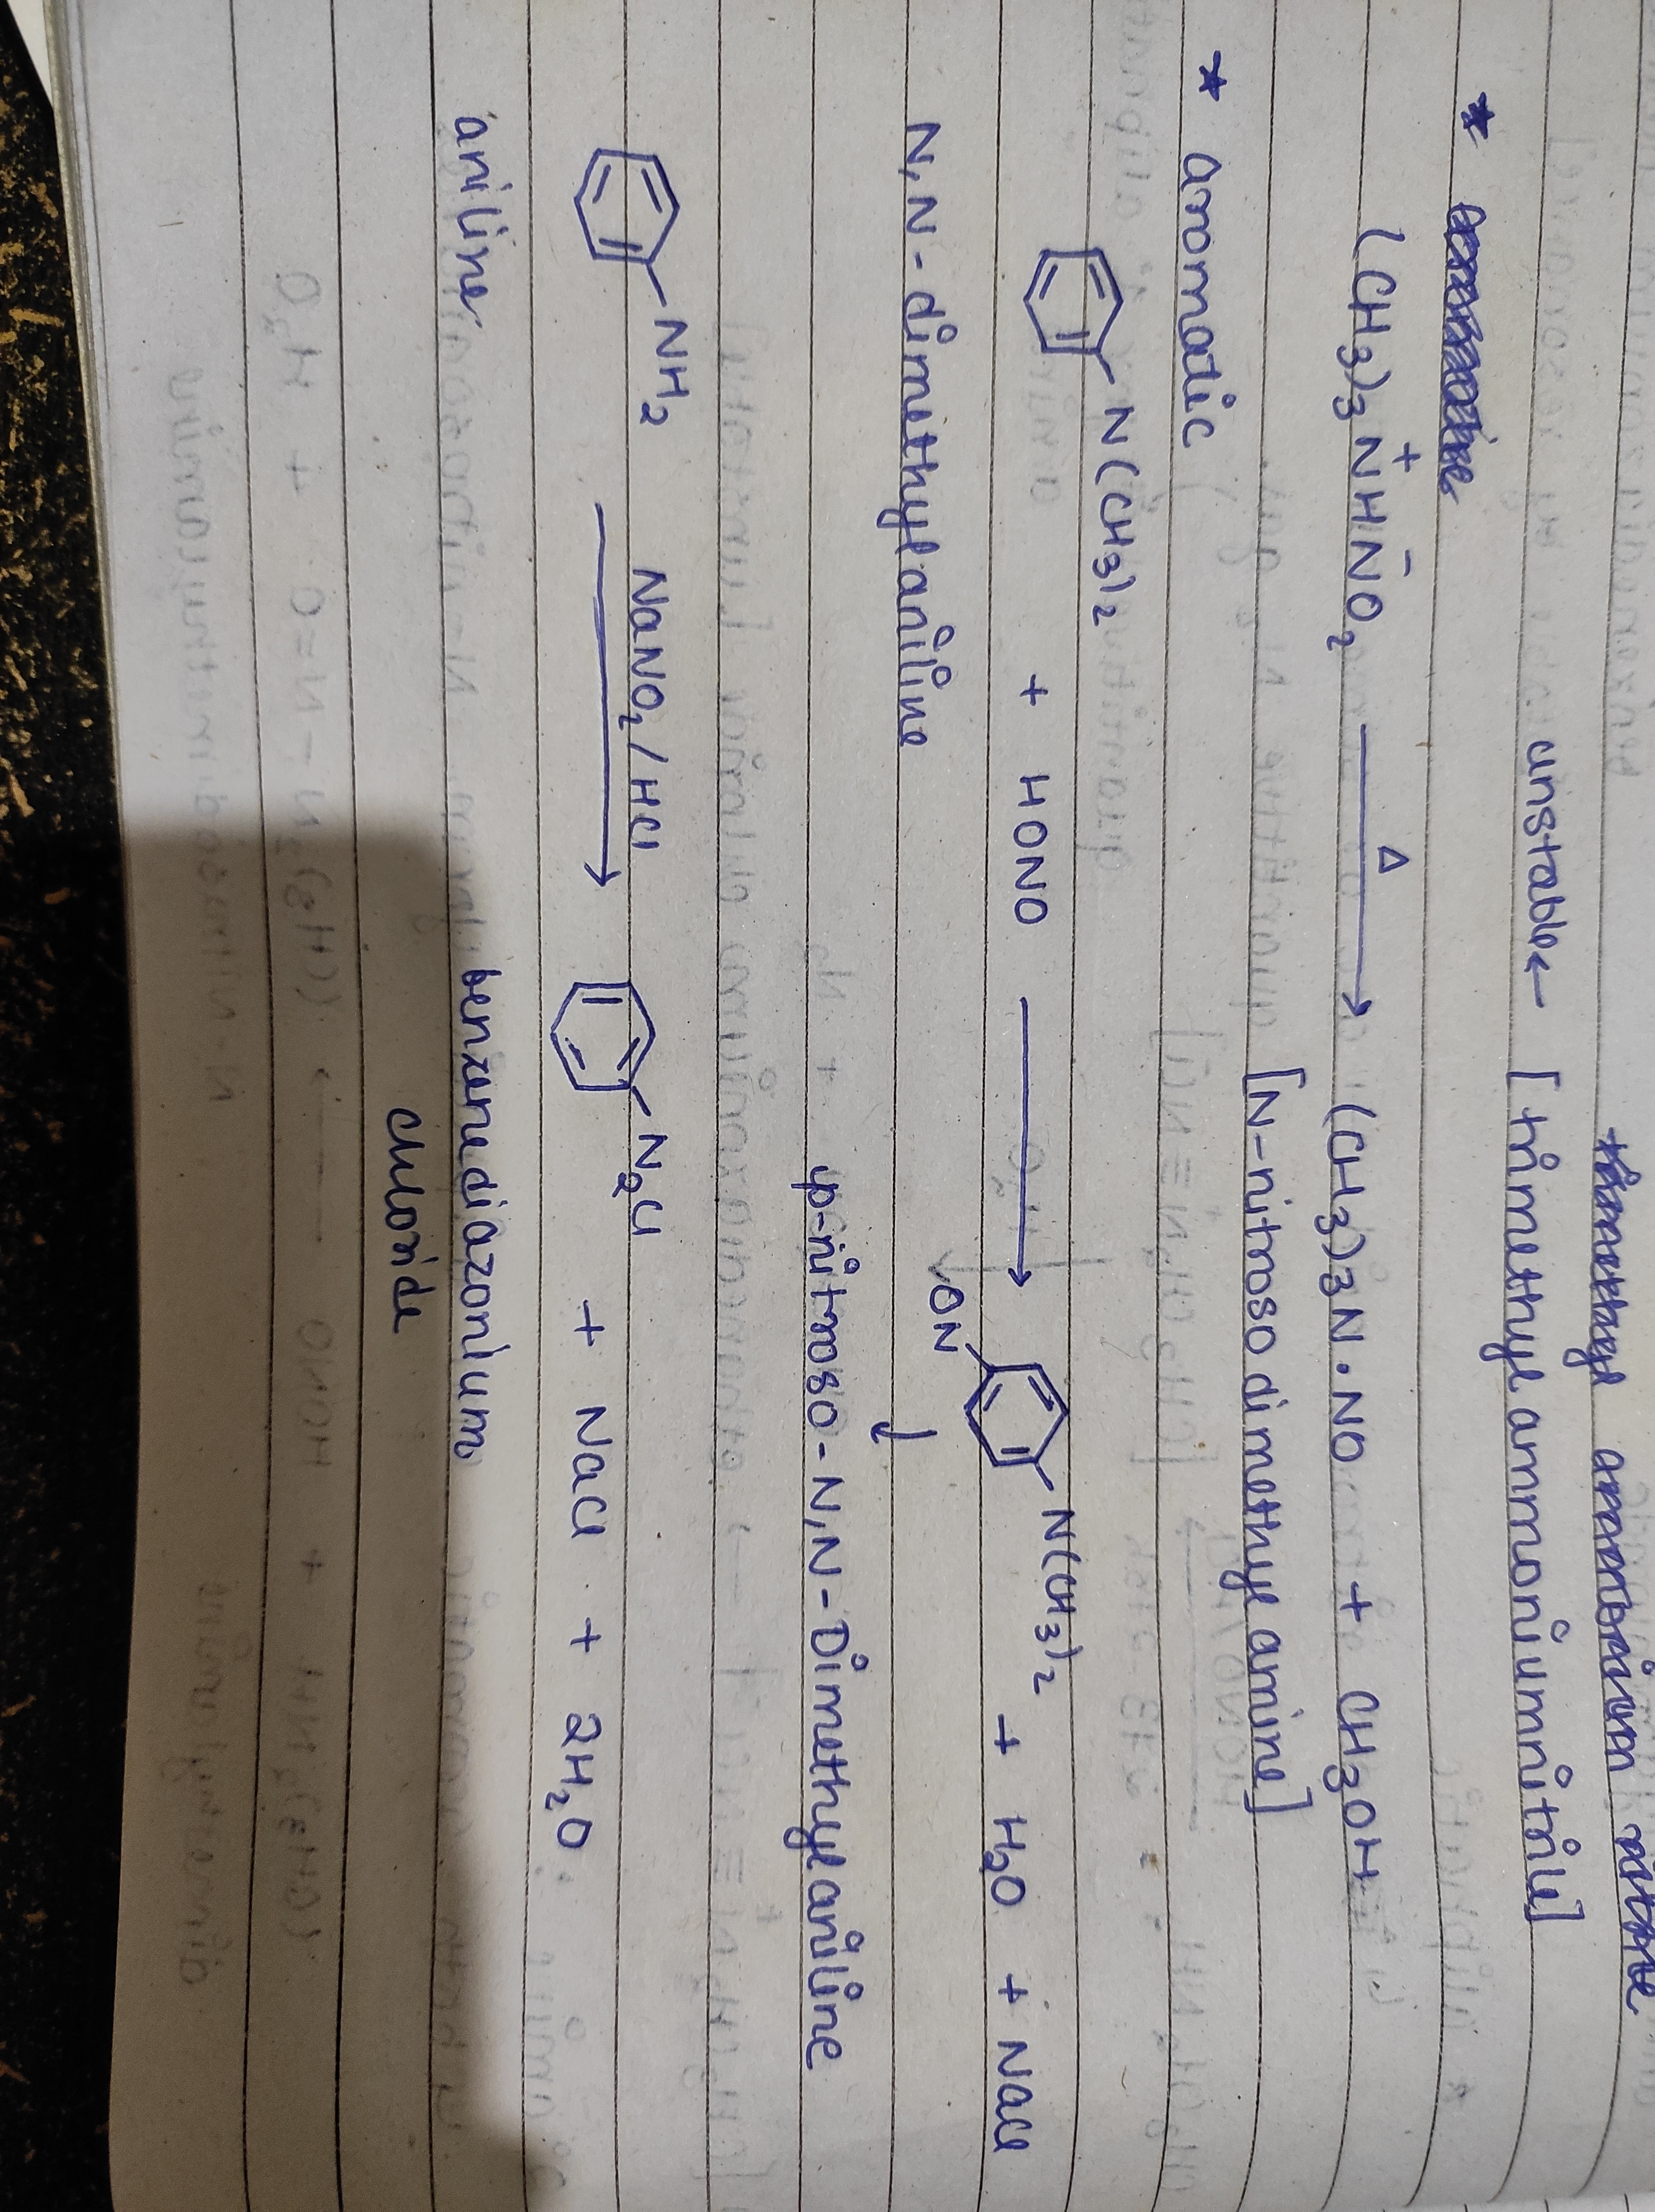 unstable ← [trimethyl ammoniumnitrile]
(CH3)3N⁺HN⁻O2 —Δ→ (CH3)3N·NO + CH3OH
[N-nitroso dimethyl amine]
* aromatic
N(CH3)2 + HONO → ON N(CH3)2 + H2O + NaCl
N,N-dimethylaniline
p-nitroso-N,N-Dimethylaniline
NH2 NaNO2/HCl → N2Cl + NaCl + 2H2O
aniline benzenediazonium
chloride